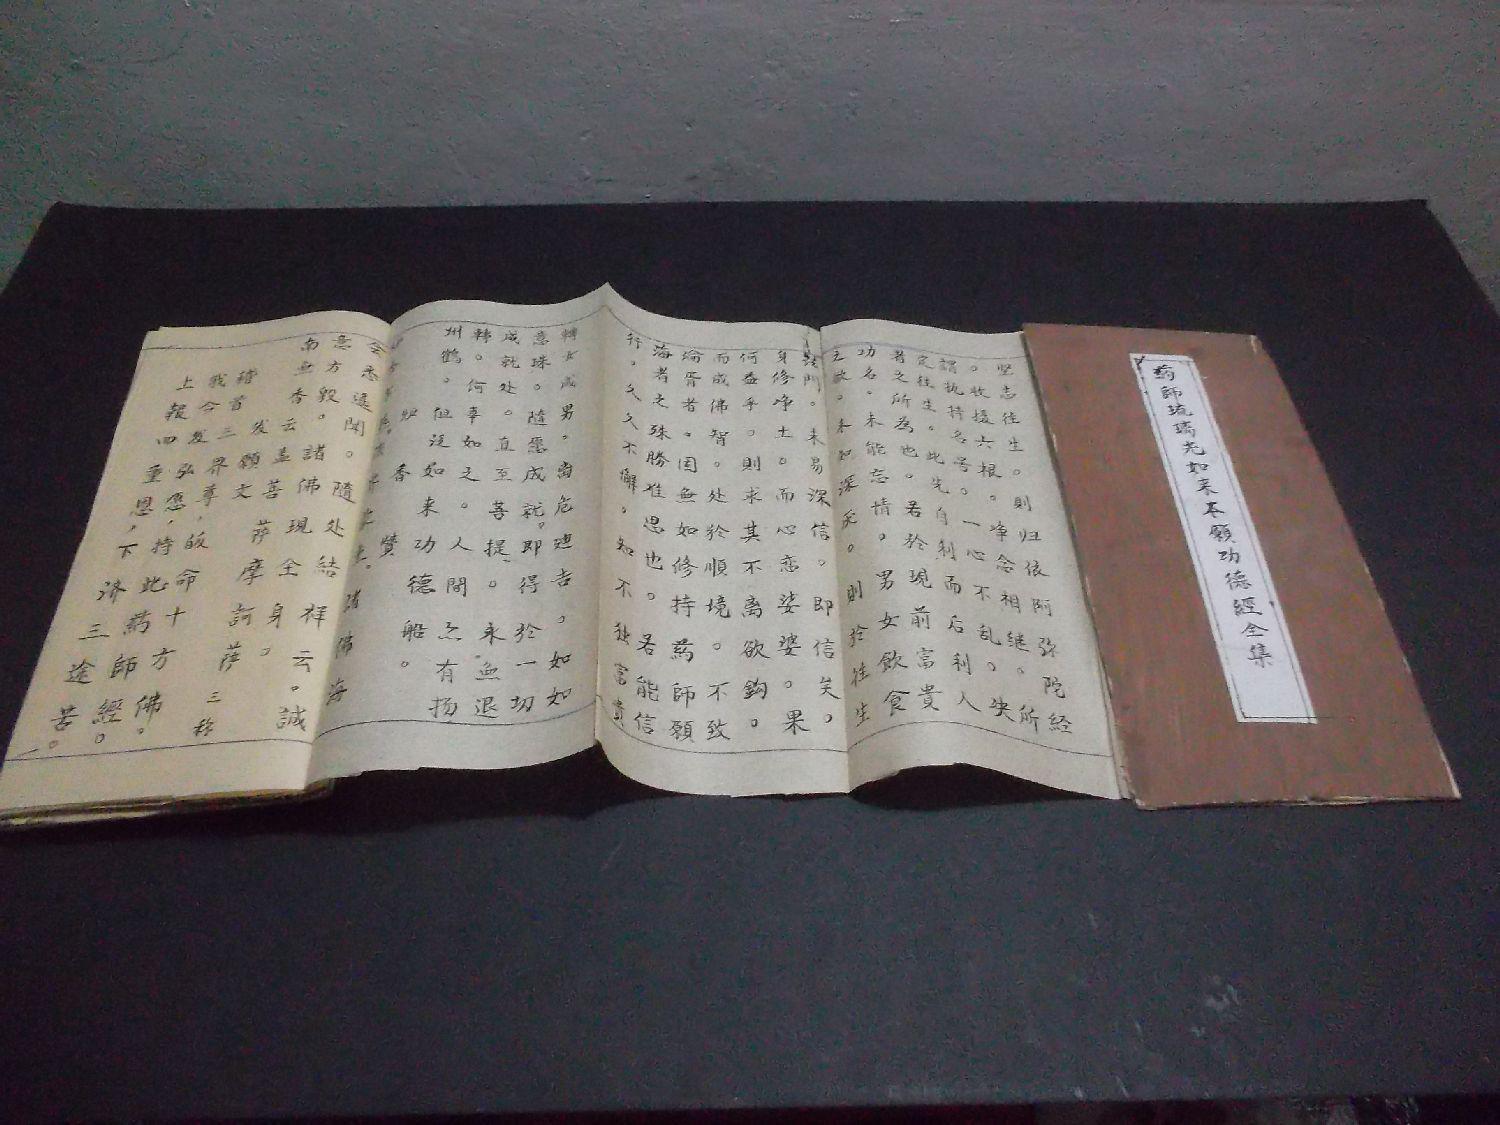 药師琉璃光如来本願功德經全集
堅志往生。則归依阿弥陀經
。收摄六根。净念相继。决所
謂执持名号。一心不乱。
定往生。此先自利而后利人
者之所為也。若於現前富貴
功名。未能忘情。男女飲食
之欲。未知深炭。則於往生
門。未易深信。即信矣。
身修净土。而心恋娑婆。果
何益乎。則求其不离欲鈎。
而成佛智。处於順境。不致
淪胥者。固無如修持药師願
海者之殊勝难思也。若能信
行。久久不懈。知不独富貴
轉女成男。啇危迎吉。如如
意珠。隨愿成就。即得於一切
成就处。直至菩提。永無退
轉。何幸如之。人間亦有扬
州鶴。但泛如来功德船。
炉香讚
諸佛海
会悉遥聞。隨处結祥云。誠
意方毀。諸佛現全身。
南無香云盖菩萨摩訶萨 三称
发願文
稽首三界尊，皈命十方佛。
我今发弘愿，持此药師經。
上報四重恩，下济三途苦。